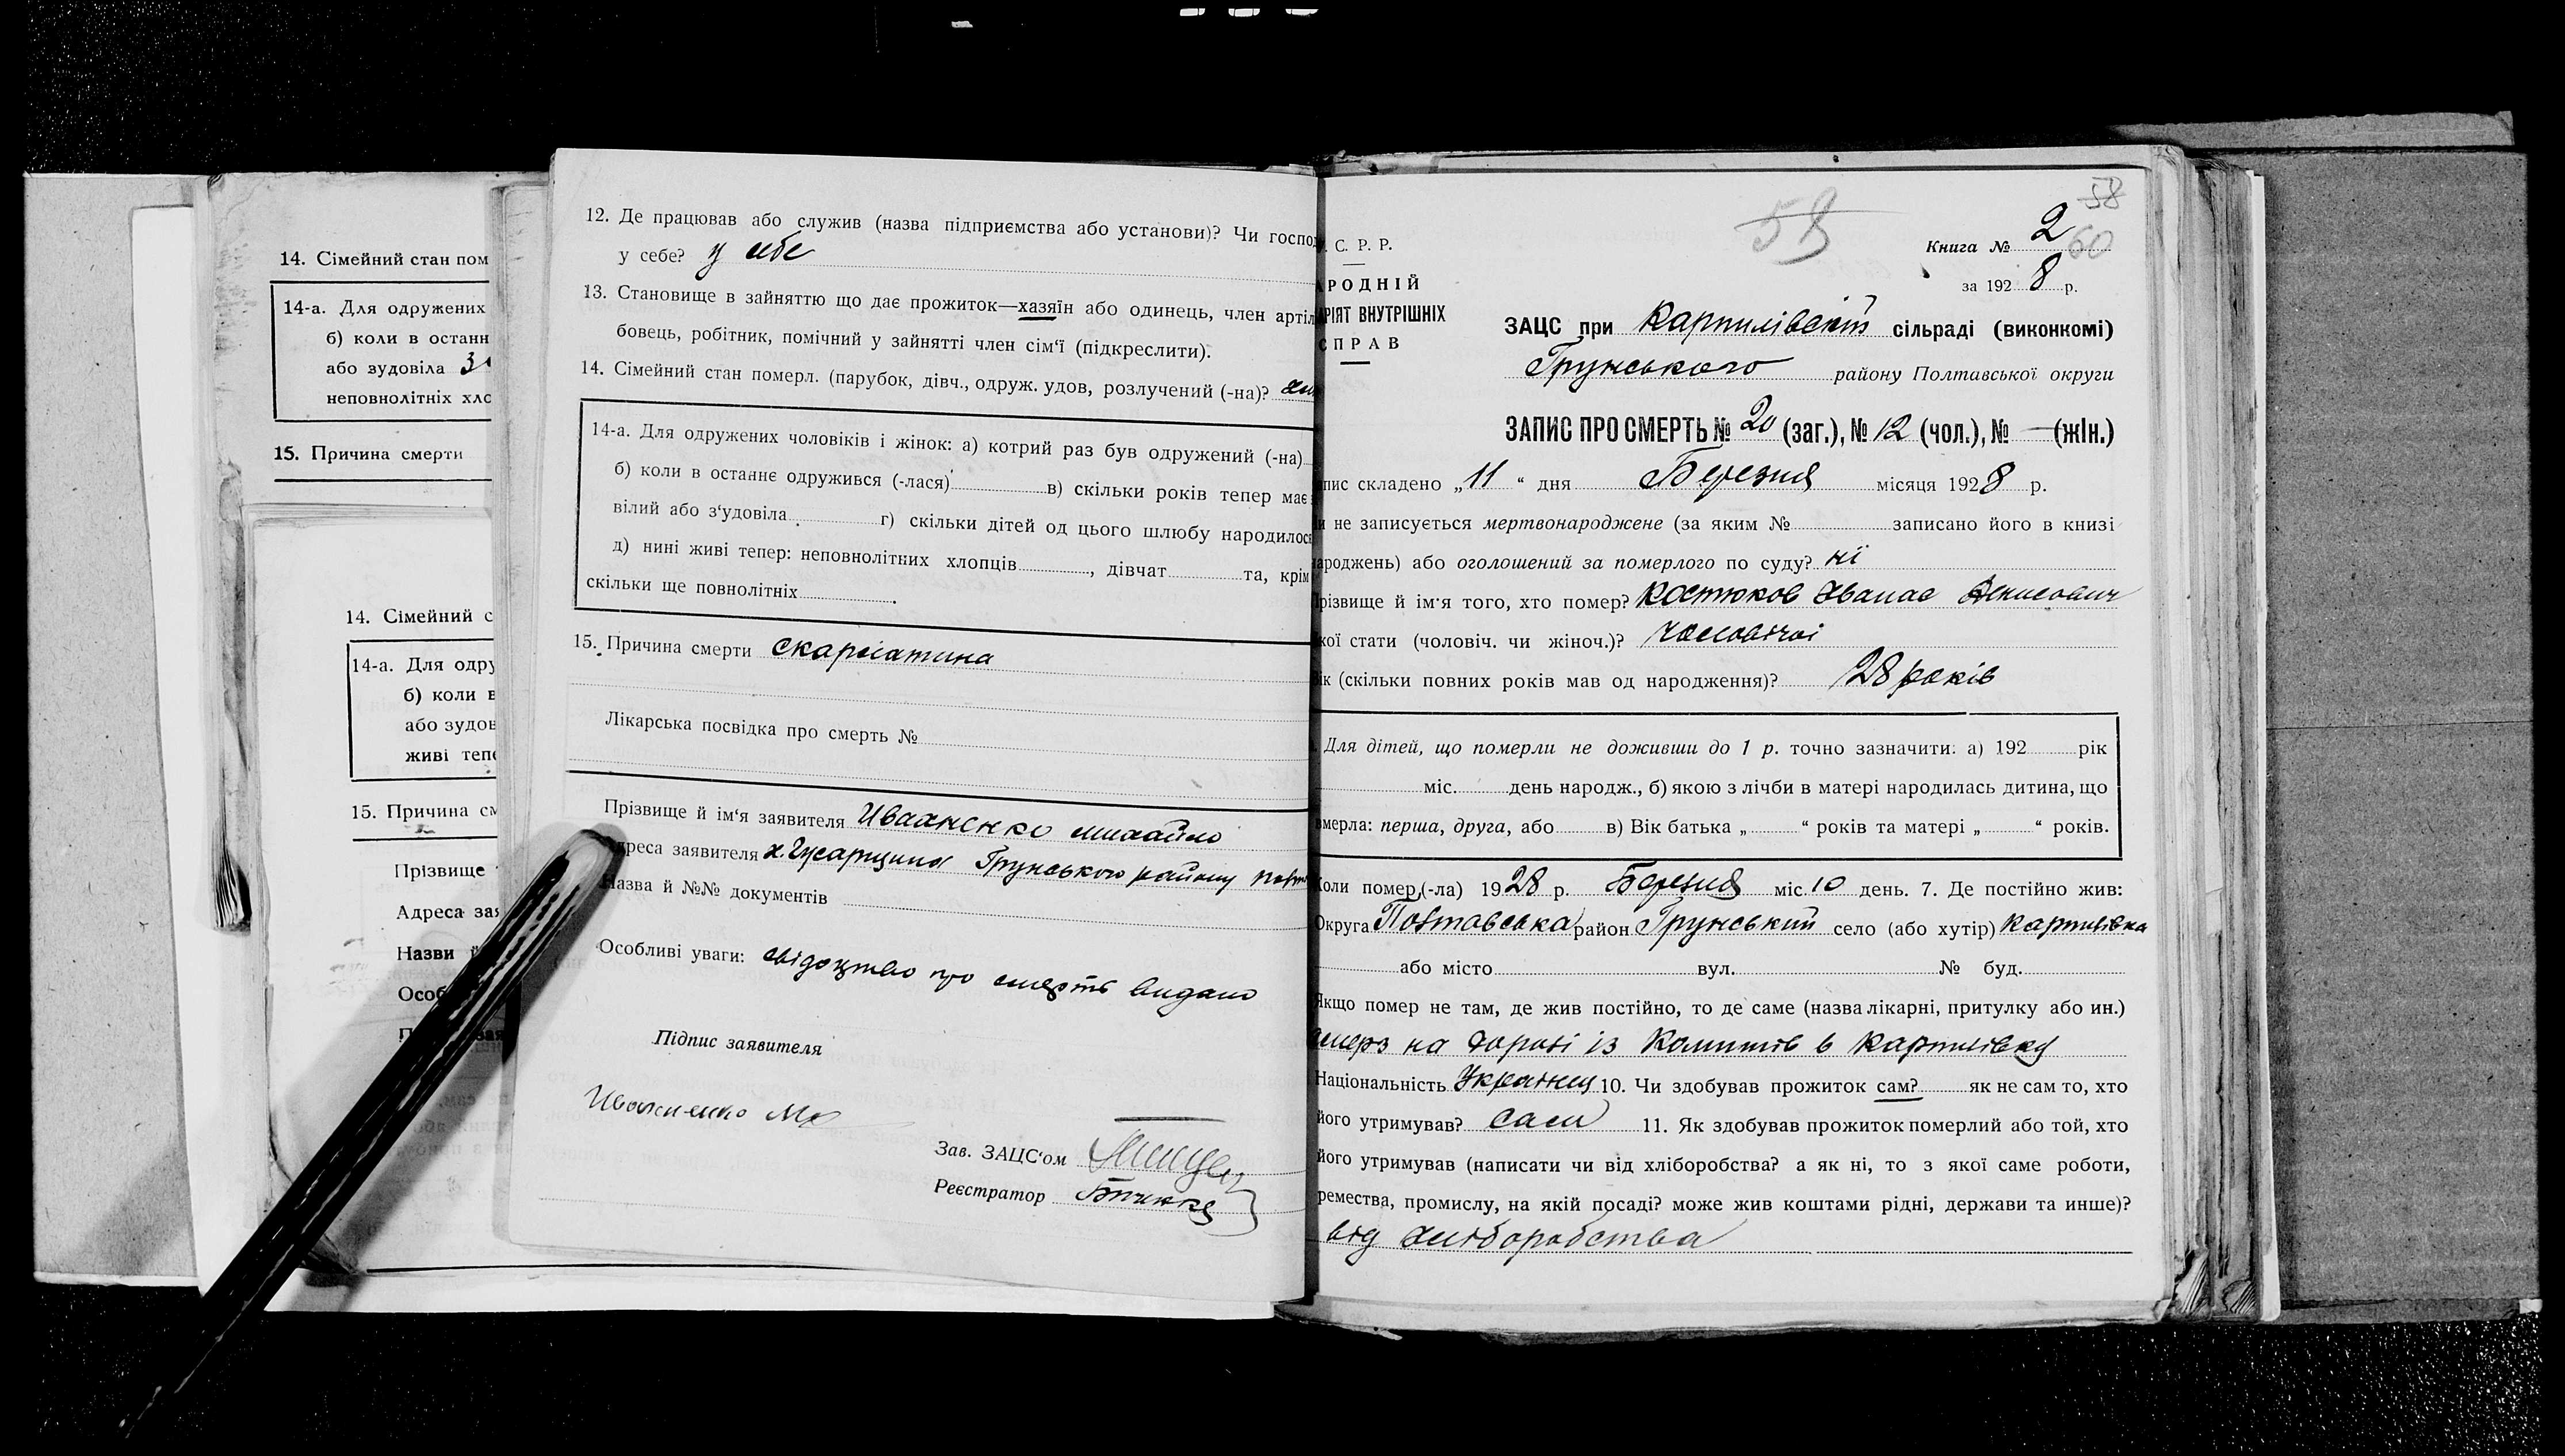 14. Сімейний стан пом
14-а. Для одружених
б) коли в останн
або зудовіла
неповнолітніх хло
15. Причина смерти
14. Сімейний с
14-а. Для одру
б) коли в
або зудов
живі тепе
15. Причина см
Прізвище
Адреса зая
Назви й
Особ
12. Де працював або служив (назва підприємства або установи)? Чи господ
у себе? у себе
13. Становище в зайняттю що дає прожиток—хазяїн або одинець, член артіл
бовець, робітник, помічний у зайнятті член сім'ї (підкреслити).
14. Сімейний стан померл. (парубок, дівч., одруж. удов, розлучений (-на)?
14-а. Для одружених чоловіків і жінок: а) котрий раз був одружений (-на)
б) коли в останнє одружився (-лася) в) скільки років тепер має
вілий або з'удовіла г) скільки дітей од цього шлюбу народилось
д) нині живі тепер: неповнолітних хлопців , дівчат та, крім
скільки ще повнолітніх .
15. Причина смерти скарлатина
Лікарська посвідка про смерть №
Прізвище й ім'я заявителя Иваненко михайло
Адреса заявителя х. Гусарщина Грунського району
Назва й №№ документів
Особливі уваги: свідоцтво про смерть видано
Підпис заявителя
Иваненко Мх
Зав. ЗАЦС'ом
Реєстратор
. С. Р. Р.
РОДНІЙ
АРІЯТ ВНУТРІШНІХ
СПРАВ
58
58
60
Книга № 2
за 1928 р.
ЗАЦС при Карпилівській сільраді (виконкомі)
Грунського району Полтавської округи
ЗАПИС ПРО СМЕРТЬ № 20 (заг.), № 12 (чол.), № — (жін.)
пис складено „11“ дня Березня місяця 1928 р.
и не записується мертвонароджене (за яким № записано його в книзі
ароджень) або оголошений за померлого по суду? ні
різвище й ім'я того, хто помер? Костюков Хванас Денисович
кої стати (чоловіч. чи жіноч.)? чоловічої
ік (скільки повних років мав од народження)? 28 років
Для дітей, що померли не доживши до 1 р. точно зазначити: а) 192 рік
міс. день народж., б) якою з лічби в матері народилась дитина, що
вмерла: перша, друга, або в) Вік батька „ “ років та матері „ “ років.
Коли помер,(-ла) 1928 р. Березня міс. 10 день. 7. Де постійно жив:
Округа Полтавська район Грунський село (або хутір) Карпилівка
або місто вул. № буд.
Якщо помер не там, де жив постійно, то де саме (назва лікарні, притулку або ин.)
на дорозі із Комишів в Карпилівку
Національність Українец 10. Чи здобував прожиток сам? як не сам то, хто
його утримував? сам 11. Як здобував прожиток померлий або той, хто
його утримував (написати чи від хліборобства? а як ні, то з якої саме роботи,
ремества, промислу, на якій посаді? може жив коштами рідні, держави та инше)?
від хліборобства